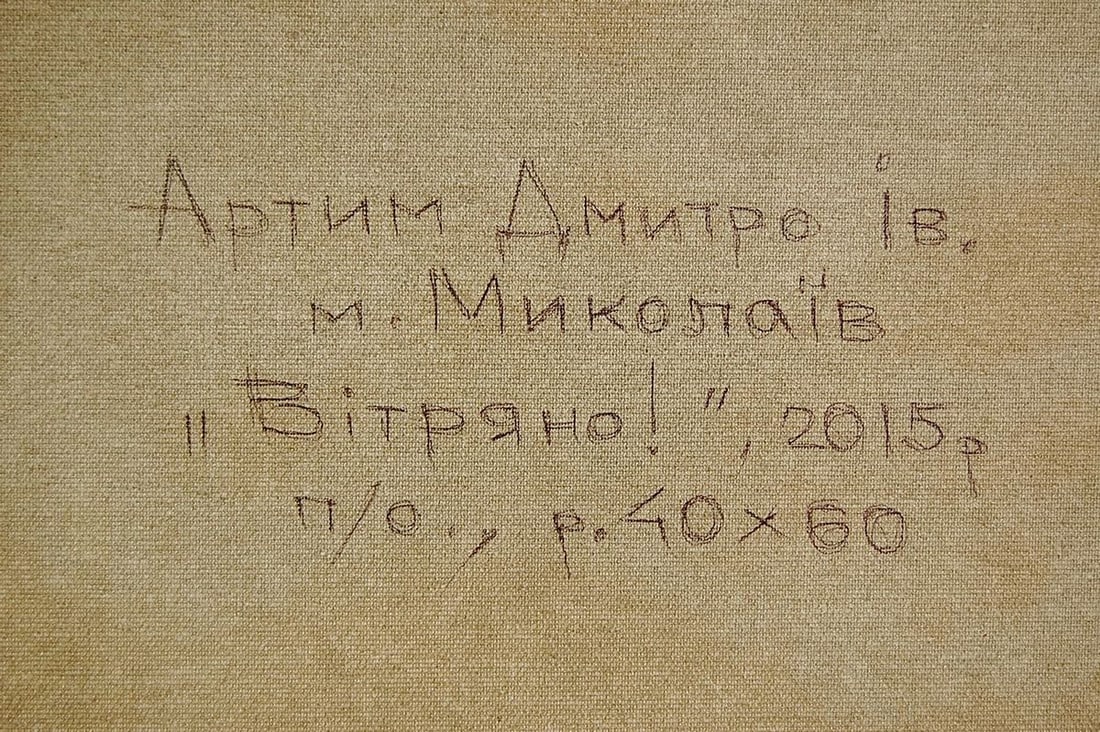 Артим Дмитро Ів.
м. Миколаїв
„Вітряно!", 2015р
п/о., р. 40х60